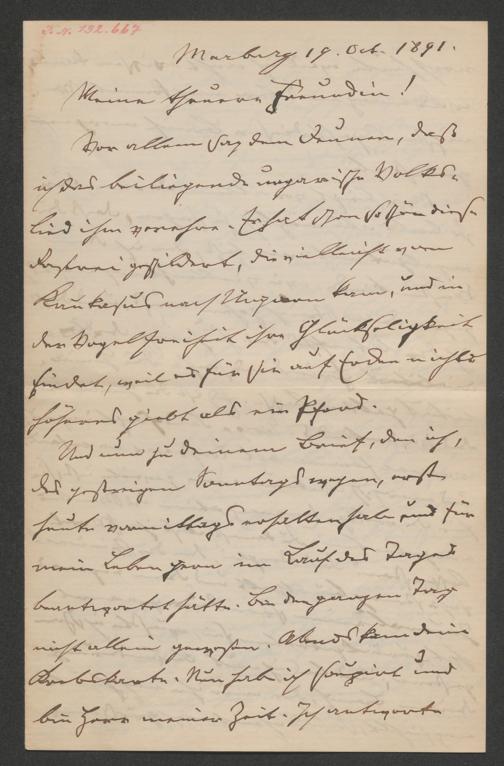 I. N. 132.667
Marburg 19. Oct. 1891.
Meine theuere Freundin!
Vor allem sag dem Deinen, daß
ich das beiliegende ungarische Volks-
lied ihm verehre. Er hat schon so schön diese
geschildert, die vielleicht vom
Kaukasus nach Ungarn kam, und in
der Vogelfreiheit ihre Glückseligkeit
findet, weil es für sie auf Erden nichts
höheres giebt als ein Pferd.
Und nun zu deinem Brief, den ich,
des gestrigen Sonntags wegen, erst
heute vormittags erhalten habe und für
mein Leben gern im Lauf des Tages
beantwortet hätte. Bin den ganzen Tag
nicht allein gewesen. Abends kam deine
Nun hab ich soupirt und
bin Herr meiner Zeit. Ich antworte